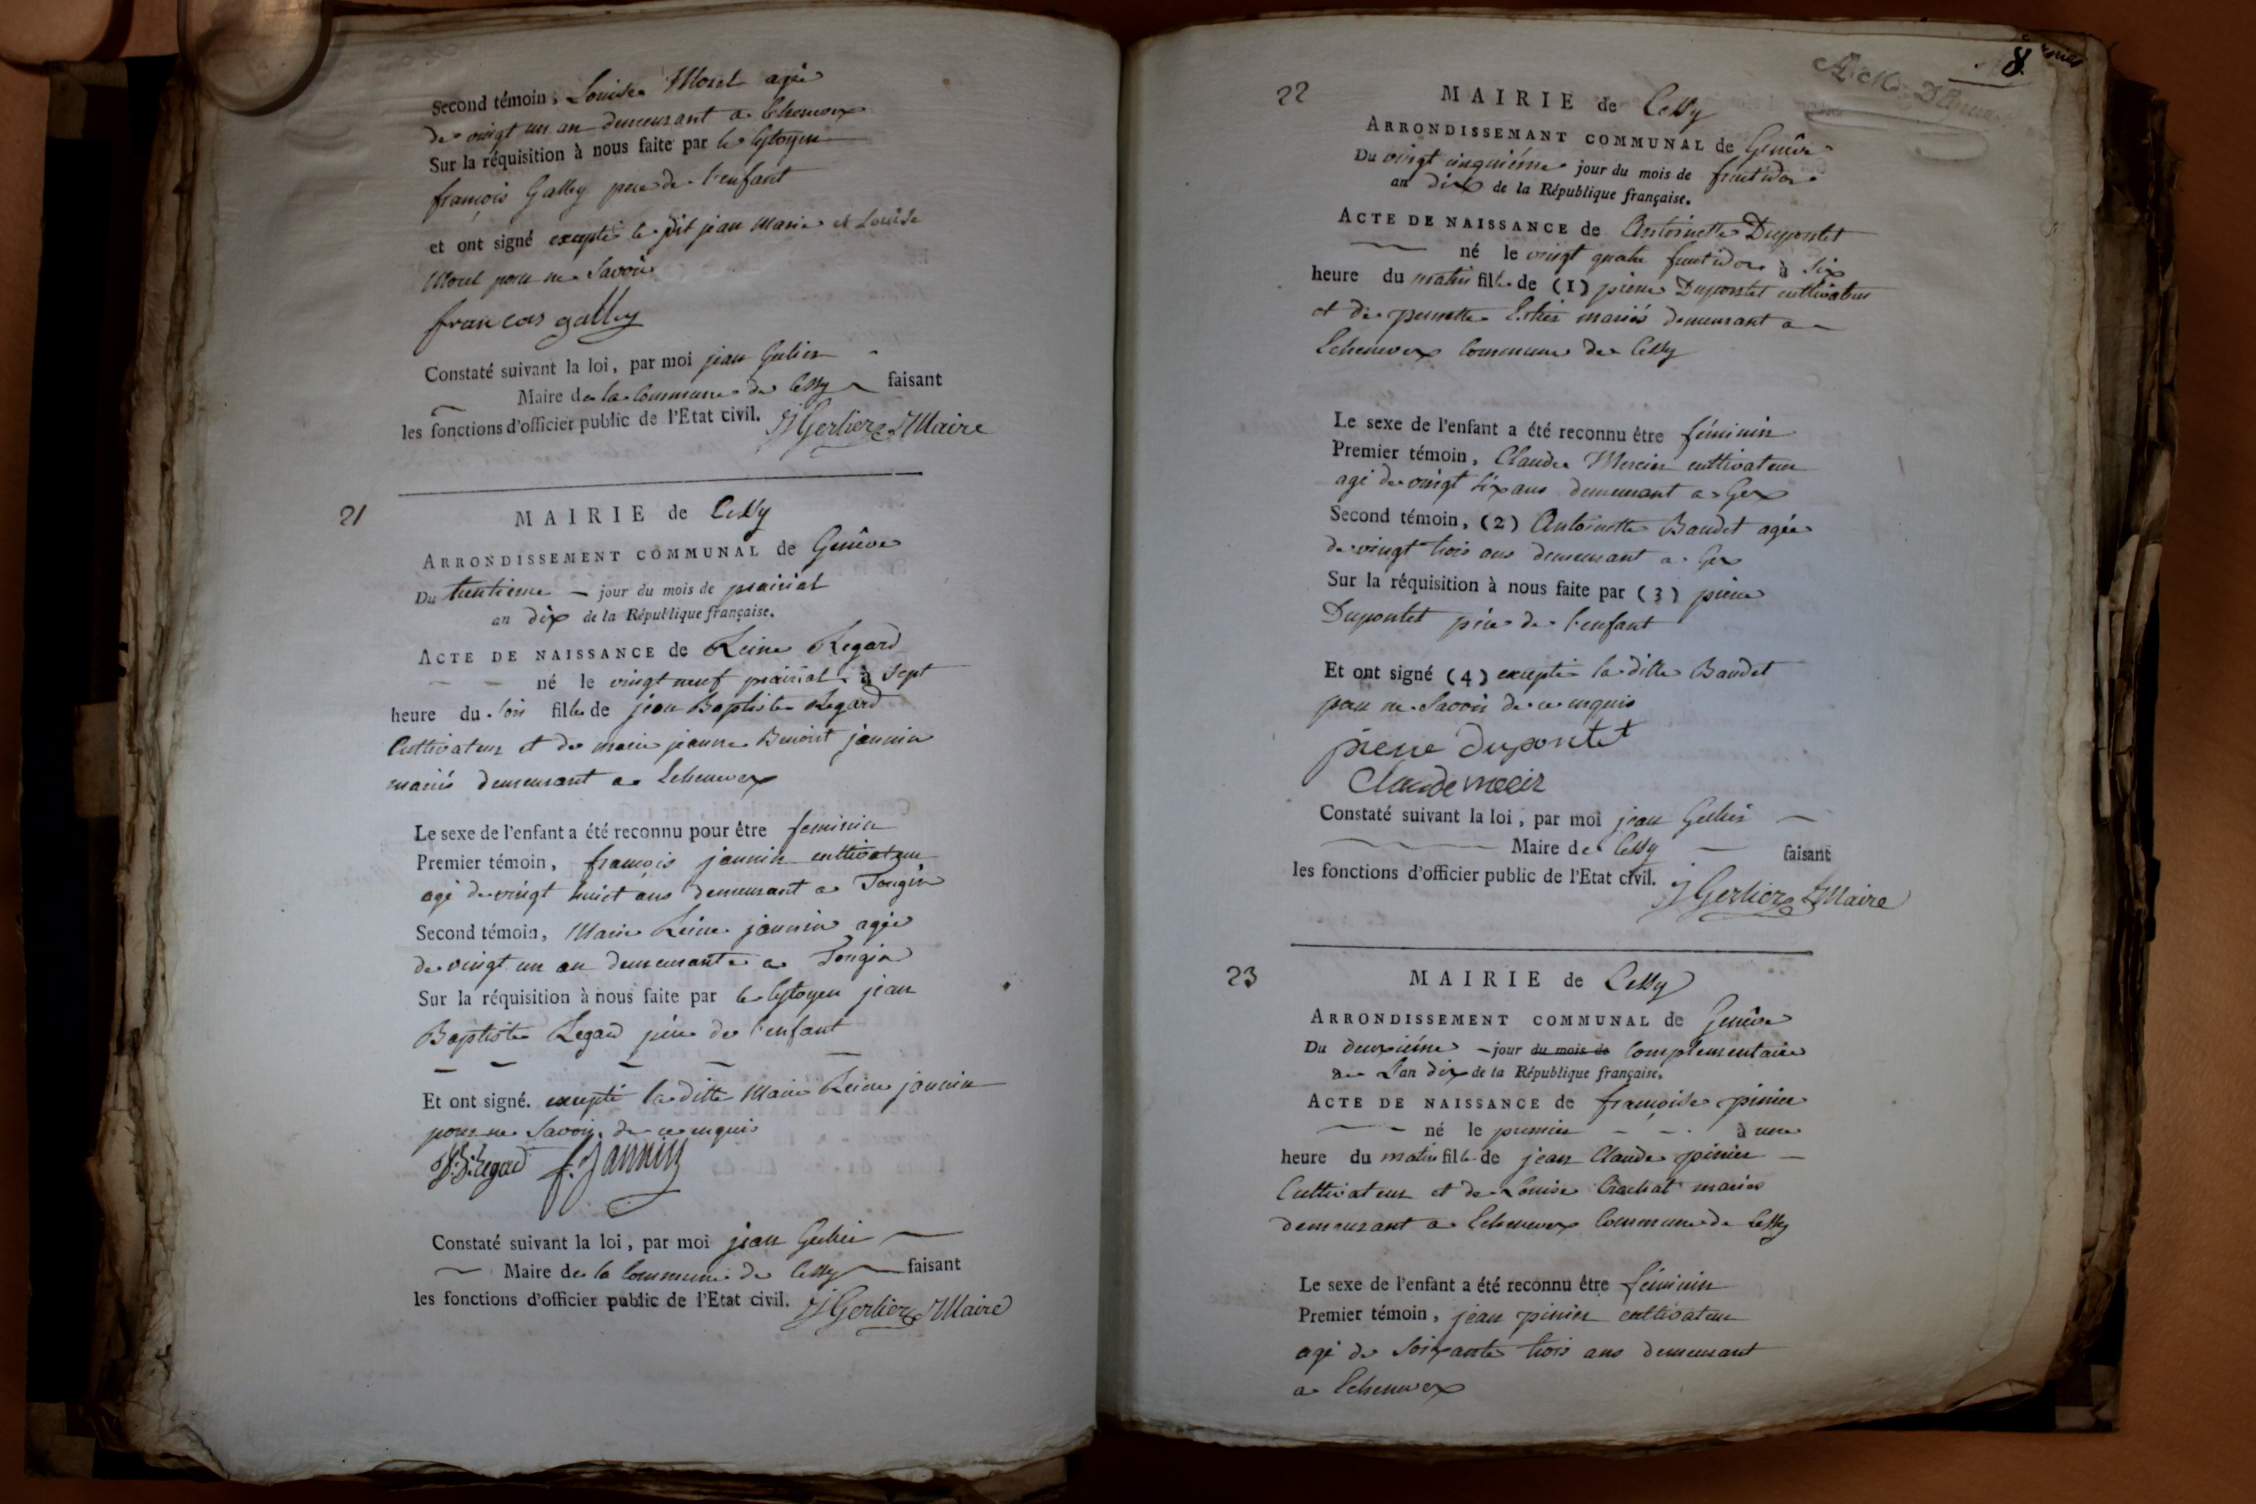 Second témoin, Louise Morel agée
de vingt un an demeurant a Echenevex
Sur la réquisition à nous faite par le Cytoyen
françois Galley pere de l'enfant
et ont signé excepté le dit jean Marie et Louise
Morel pour ne Savoir
francois galley
Constaté suivant la loi, par moi jean Gerlier
Maire de la Commune de Cessy faisant
les fonctions d'officier public de l'Etat civil. J Gerlier Maire
21
MAIRIE de Cessy
ARRONDISSEMENT COMMUNAL de Genêve
Du trentieme jour du mois de prairial
an dix de la République française.
ACTE DE NAISSANCE de Reine Regard
né le vingt neuf prairial à Sept
heure du Soir fille de jean Baptiste Regard
Cultivateur et de marie jeanne Benoist jannin
mariés demeurant a Echenevex
Le sexe de l'enfant a été reconnu pour être feminin
Premier témoin, françois jannin cultivateur
agé de vingt huict ans demeurant a Tougin
Second témoin, Marie Reine jannin agée
de vingt un an demeurante a Tougin
Sur la réquisition à nous faite par le Cytoyen jean
Baptiste Regard père de l'enfant
Et ont signé. excepté la ditte Marie Reine jannin
pour ne Savoir de ce enquis
J. B. Regard f. Jannin
Constaté suivant la loi, par moi jean Gerlier
Maire de la Commune de Cessy faisant
les fonctions d'officier public de l'Etat civil. J Gerlier Maire
8
22
MAIRIE de Cessy
ARRONDISSEMANT COMMUNAL de Genêve
Du vingt cinquiéme jour du mois de fructidor
an dix de la République française.
ACTE DE NAISSANCE de Antoinette Dupontet
né le vingt quatre fructidor à Six
heure du matin fille de (1) pierre Dupontet cultivateur
et de pernette mariés demeurant a
Echenevex Commune de Cessy
Le sexe de l'enfant a été reconnu être féminin
Premier témoin, Claude Mercier cultivateur
agé de vingt Six ans demeurant a Gex
Second témoin, (2) Antoinette Baudet agée
de vingt trois ans demeurant a Gex
Sur la réquisition à nous faite par (3) pierre
Dupontet père de l'enfant
Et ont signé (4) excepté la ditte Baudet
pour ne Savoir de ce enquis
pierre dupontet
Claude
Constaté suivant la loi, par moi jean Gerlier
Maire de Cessy faisant
les fonctions d'officier public de l'Etat civil. J Gerlier Maire
23
MAIRIE de Cessy
ARRONDISSEMENT COMMUNAL de Genêve
Du deuxiéme jour du mois de Complementaire
de L'an dix de la République française.
ACTE DE NAISSANCE de françoise pinier
né le premier à une
heure du matin fille de jean Claude pinier
Cultivateur et de Louise Crachat mariés
demeurant a Echenevex Commune de Cessy
Le sexe de l'enfant a été reconnu être féminin
Premier témoin, jean pinier cultivateur
agé de Soixante trois ans demeurant
a Echenevex